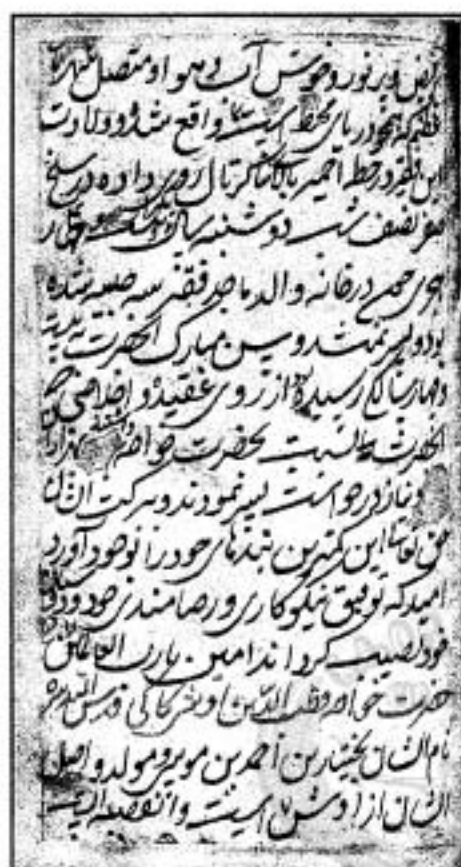 فیض و پر نور و خوش آب و هوا و متصل شهر
عظیم که همچو دریای محیط است واقع شده و ولادت
این فقیر در خطه اجمیر بالای ساگرتال روی داده در سلخ
صفر نصف شب دوشنبه سال و چهار
هجری چون در خانه والد ماجد فقیر سه صبیه شده
بود و پسر نمیشد و سن مبارک آنحضرت
و چهار سالگی رسیده از روی عقیده و اخلاصی که
آنحضرت را نسبت بحضرت خواجه هزاران
و نیاز درخواست پسر نمودند و ببرکت ایشان
حق تعالی این کمترین بندهای خود را بوجود آورد
امید که توفیق نیکوکاری و رضامندی خود و دوستان
خود نصیب گرداند امین یا رب العالمین
حضرت خواجه قطب الدین اوشی کاکی قدس الله سره
نام ایشان بختیار بن احمد بن موسی و مولد و اصل
ایشان از اوش است و آن قصبه ایست